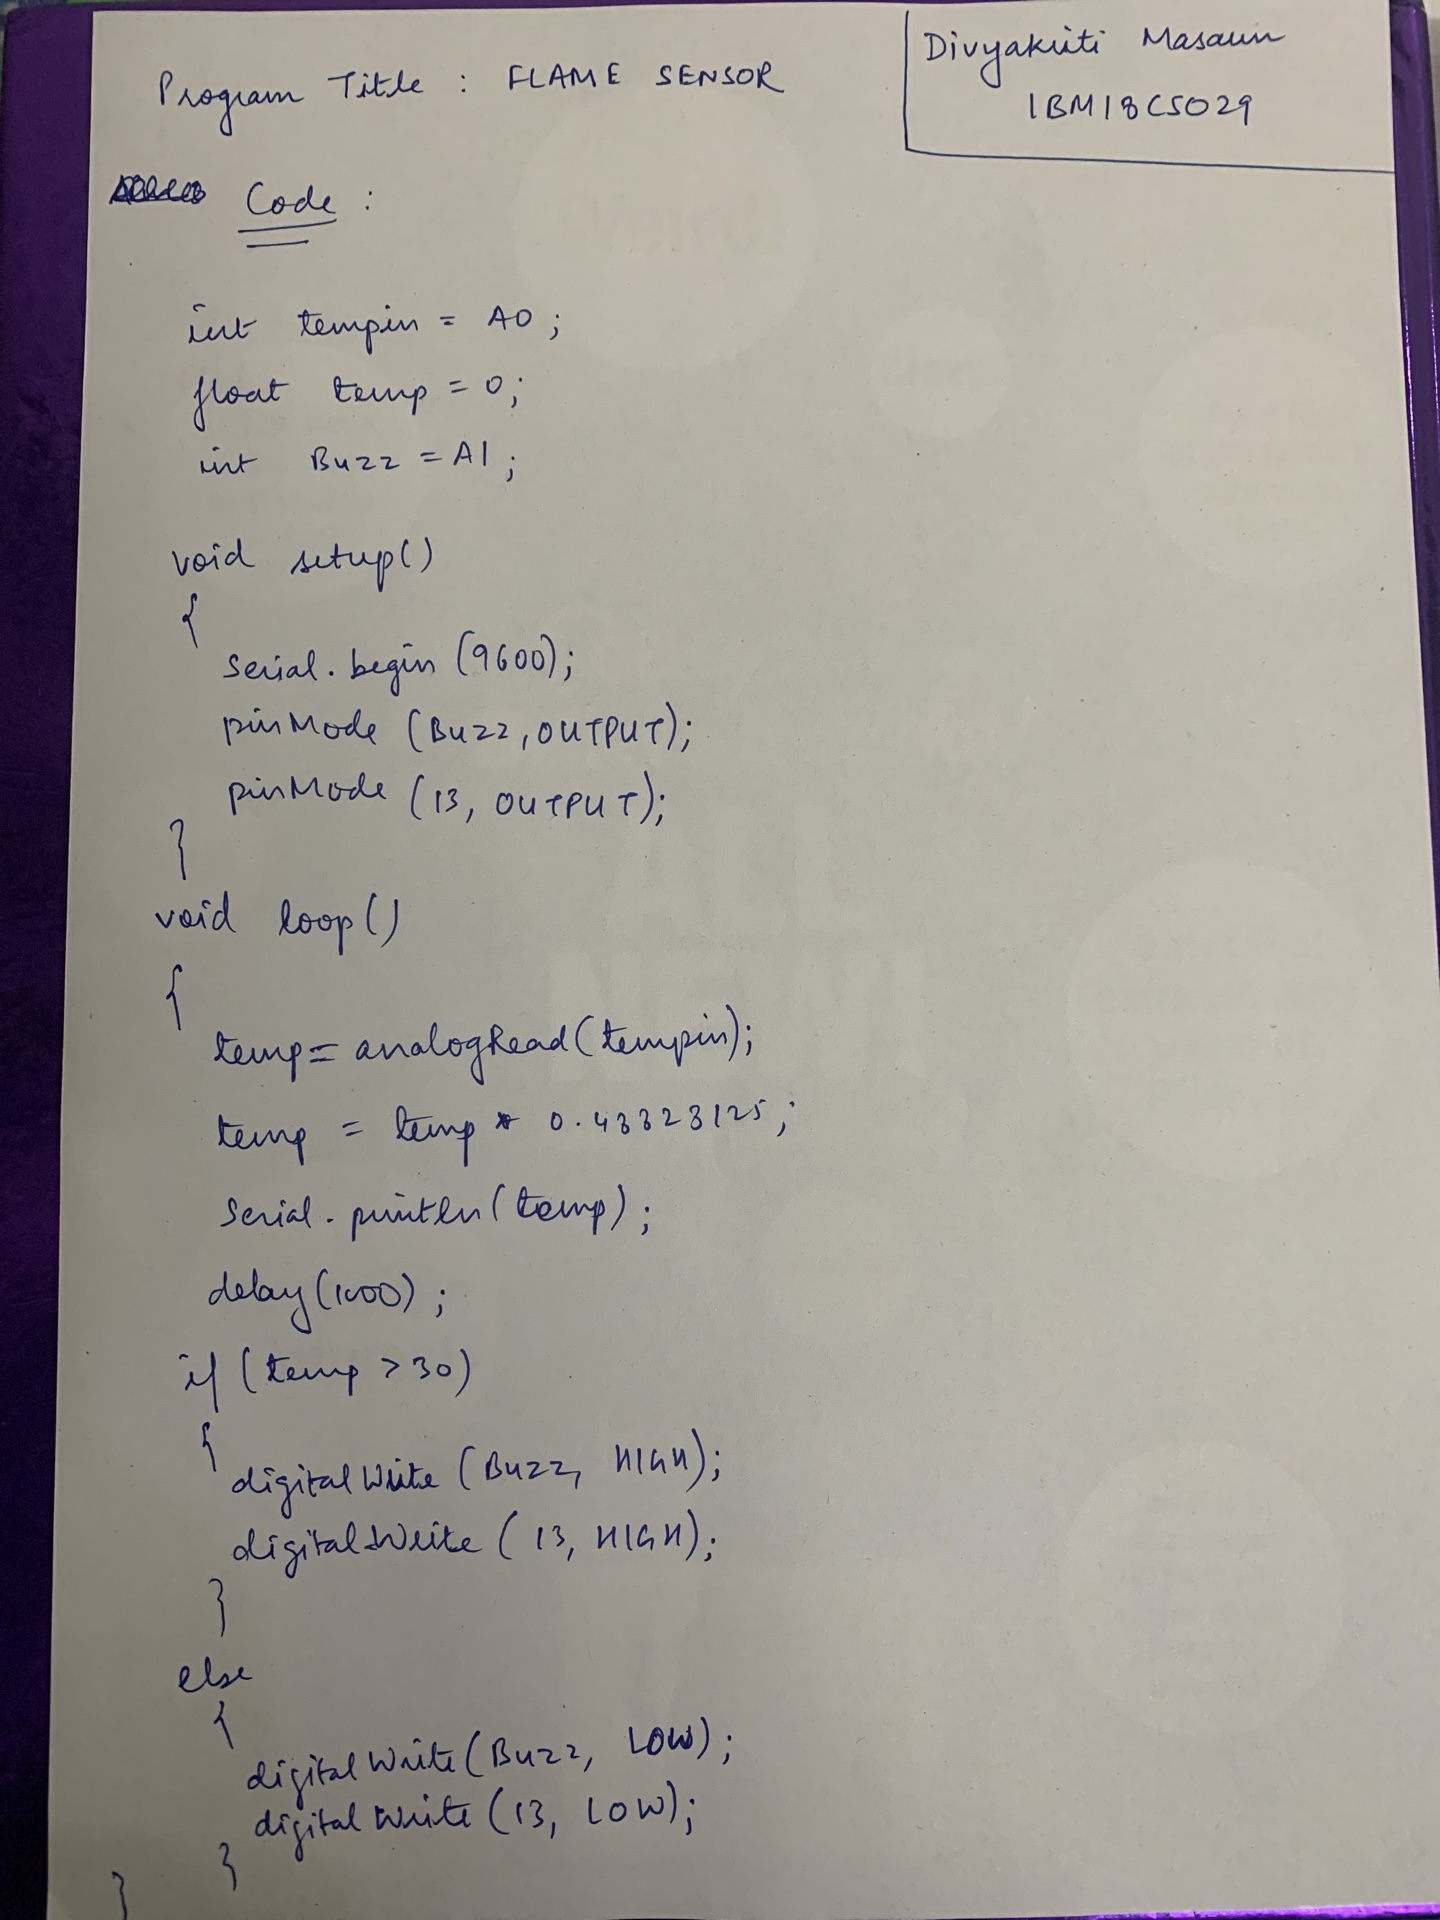 Program Title : FLAME SENSOR
Divyakriti Masaun
1BM18CS029
Code :
int tempin = A0 ;
float temp = 0;
int Buzz = A1 ;
void setup()
{
Serial.begin (9600);
pinMode (Buzz, OUTPUT);
pinMode (13, OUTPUT);
}
void loop()
{
temp = analogRead(tempin);
temp = temp * 0.48828125;
Serial.println(temp);
delay(1000);
if (temp > 30)
{
digitalWrite (Buzz, HIGH);
digitalWrite (13, HIGH);
}
else
{
digitalWrite(Buzz, LOW);
digitalWrite (13, LOW);
}
}